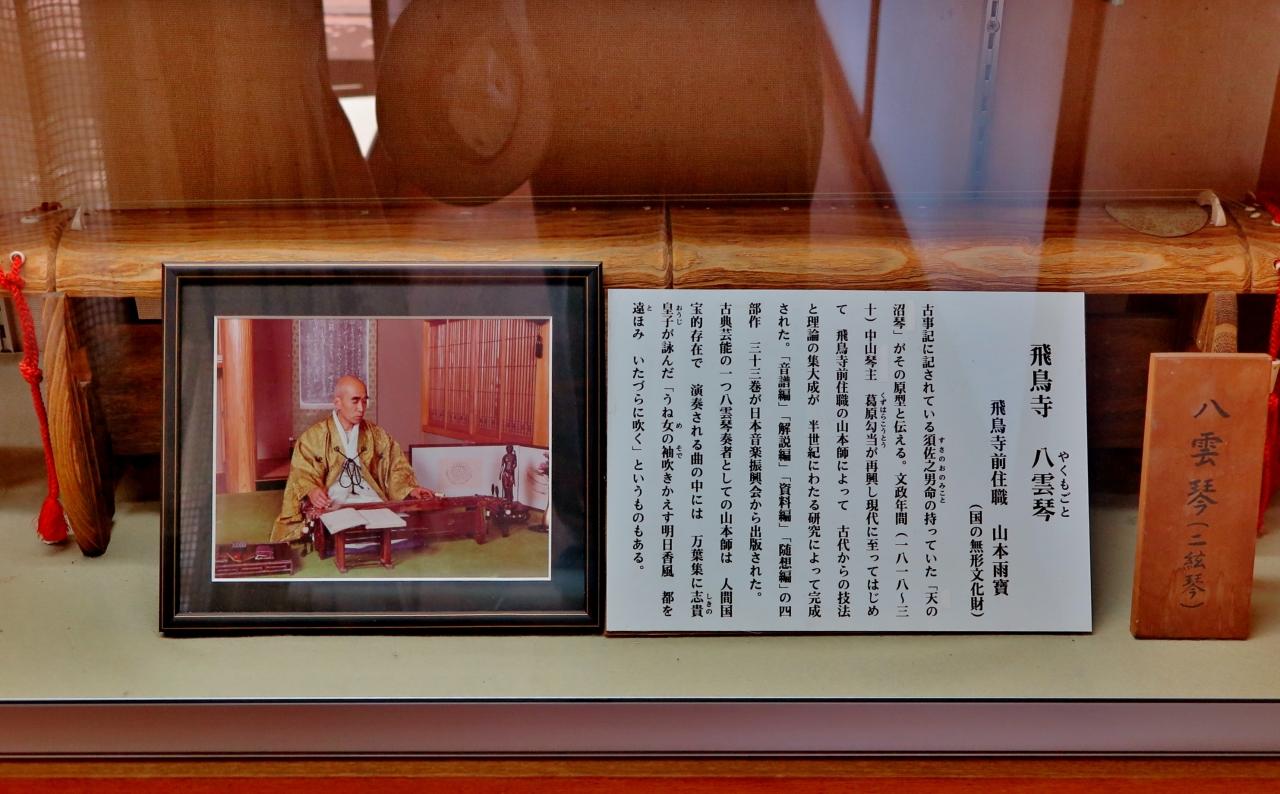 飛鳥寺　八雲琴
やくもごと
飛鳥寺前住職　山本雨寶
（国の無形文化財）
古事記に記されている須佐之男命の持っていた「天の
すさのおのみこと
沼琴」がその原型と伝える。文政年間（一八一八〜三
十）中山琴主　葛原勾当が再興し現代に至ってはじめ
くずはらこうとう
て　飛鳥寺前住職の山本師によって　古代からの技法
と理論の集大成が　半世紀にわたる研究によって完成
された。「音譜編」「解説編」「資料編」「随想編」の四
部作　三十三巻が日本音楽振興会から出版された。
古典芸能の一つ八雲琴奏者としての山本師は　人間国
宝的存在で　演奏される曲の中には　万葉集に志貴
しきの
皇子が詠んだ「うね女の袖吹きかえす明日香風　都を
おうじ　め　そで
遠ほみ　いたづらに吹く」というものもある。
と
八雲琴（二絃琴）